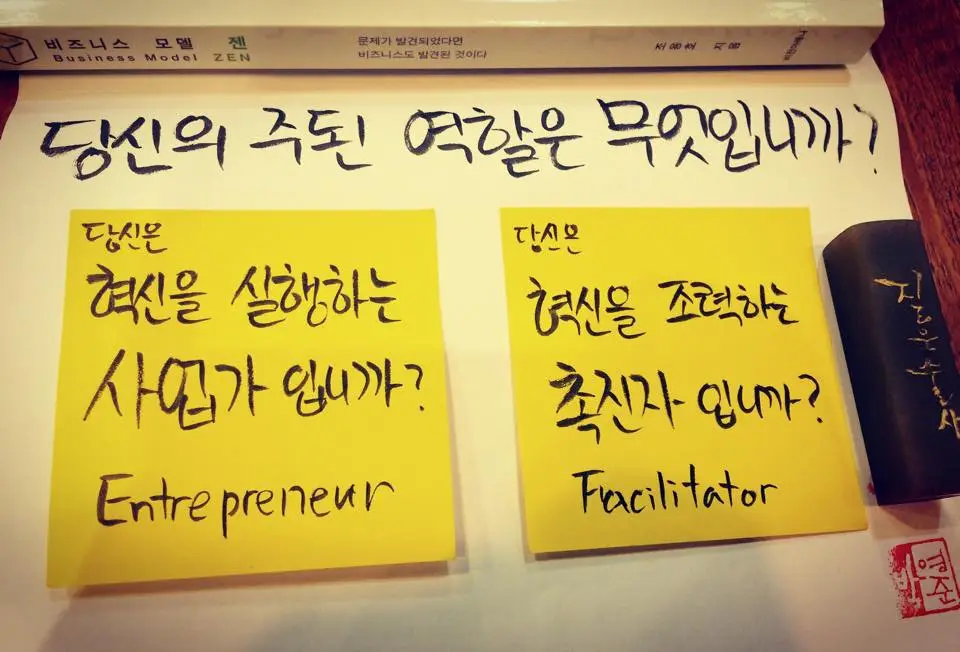 비즈니스 모델 젠
Business Model ZEN
문제가 발견되었다면
비즈니스도 발견된 것이다
조용호 지음
당신의 주된 역할은 무엇입니까?
당신은
혁신을 실행하는
사업가 입니까?
Entrepreneur
당신은
혁신을 조력하는
촉진자 입니까?
Facilitator
영준